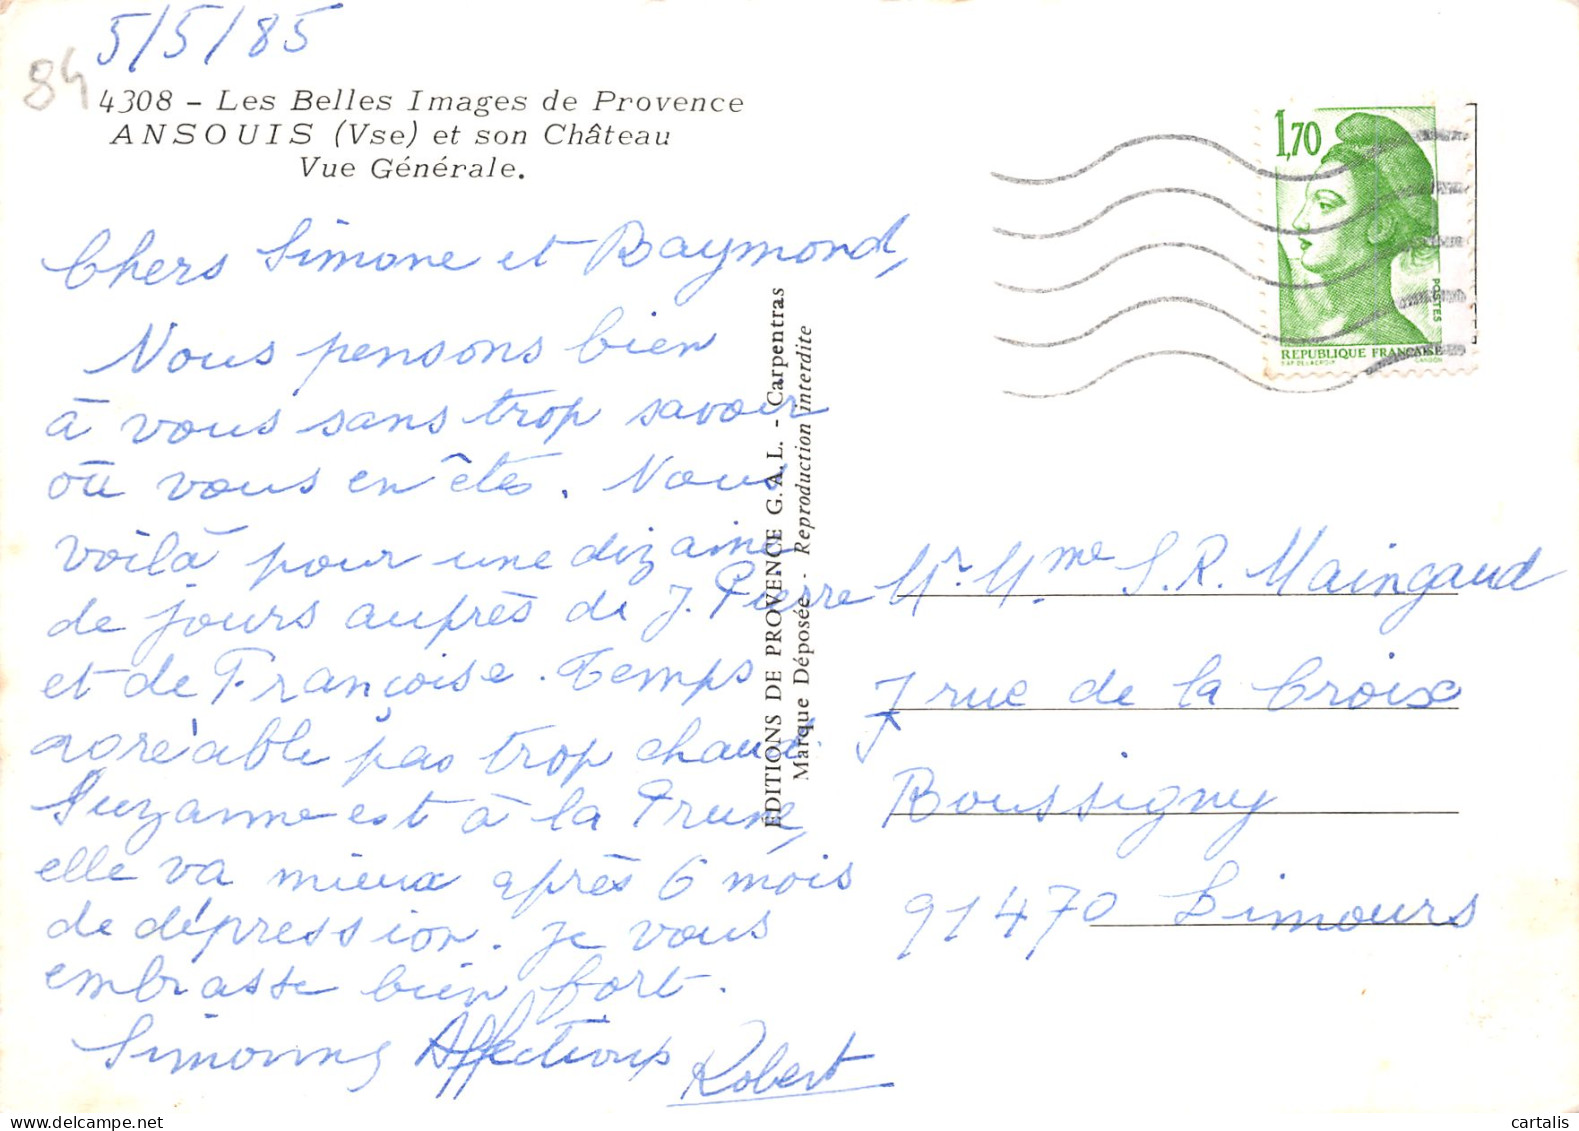 5/5/85
84
4308 - Les Belles Images de Provence
ANSOUIS (Vse) et son Château
Vue Générale.
Chers Simone et Raymond,
Nous pensons bien
à vous sans trop savoir
où vous en êtes. Nous
voilà pour une dizaine
de jours auprès de J. Pierre
et de Françoise. Temps
agréable pas trop chaud.
Suzanne est à la Prune,
elle va mieux après 6 mois
de dépression. je vous
embrasse bien fort.
Simonne Affections
Robert
EDITIONS DE PROVENCE G.A.L. - Carpentras
Marque Déposée - Reproduction interdite
1,70
POSTES
REPUBLIQUE FRANÇAISE
D'AP. DELACROIX GANDON
Mr. Mme S.R. Maingaud
7 rue de la Croix
Boussigny
91470 Limours
cartalis